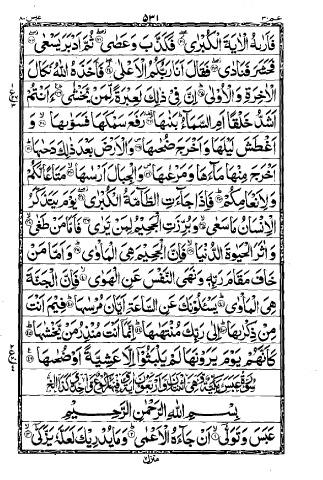 عبس ٨٠ ٥٣١ عم ٣٠
فَاَرٰىهُ الْاٰيَةَ الْكُبْرٰى فَكَذَّبَ وَعَصٰى ثُمَّ اَدْبَرَ يَسْعٰى
فَحَشَرَ فَنَادٰى فَقَالَ اَنَا رَبُّكُمُ الْاَعْلٰى فَاَخَذَهُ اللّٰهُ نَكَالَ
الْاٰخِرَةِ وَالْاُوْلٰى اِنَّ فِيْ ذٰلِكَ لَعِبْرَةً لِّمَنْ يَّخْشٰى ءَاَنْتُمْ
اَشَدُّ خَلْقًا اَمِ السَّمَآءُ بَنٰىهَا رَفَعَ سَمْكَهَا فَسَوّٰىهَا وَ
اَغْطَشَ لَيْلَهَا وَاَخْرَجَ ضُحٰىهَا وَالْاَرْضَ بَعْدَ ذٰلِكَ دَحٰىهَا
اَخْرَجَ مِنْهَا مَآءَهَا وَمَرْعٰىهَا وَالْجِبَالَ اَرْسٰىهَا مَتَاعًا لَّكُمْ
وَلِاَنْعَامِكُمْ فَاِذَا جَآءَتِ الطَّآمَّةُ الْكُبْرٰى يَوْمَ يَتَذَكَّرُ
الْاِنْسَانُ مَا سَعٰى وَبُرِّزَتِ الْجَحِيْمُ لِمَنْ يَّرٰى فَاَمَّا مَنْ طَغٰى
وَاٰثَرَ الْحَيٰوةَ الدُّنْيَا فَاِنَّ الْجَحِيْمَ هِيَ الْمَاْوٰى وَاَمَّا مَنْ
خَافَ مَقَامَ رَبِّهٖ وَنَهَى النَّفْسَ عَنِ الْهَوٰى فَاِنَّ الْجَنَّةَ
هِيَ الْمَاْوٰى يَسْـَٔلُوْنَكَ عَنِ السَّاعَةِ اَيَّانَ مُرْسٰىهَا فِيْمَ اَنْتَ
مِنْ ذِكْرٰىهَا اِلٰى رَبِّكَ مُنْتَهٰىهَا اِنَّمَآ اَنْتَ مُنْذِرُ مَنْ يَّخْشٰىهَا
كَاَنَّهُمْ يَوْمَ يَرَوْنَهَا لَمْ يَلْبَثُوْٓا اِلَّا عَشِيَّةً اَوْ ضُحٰىهَا
سورة عبس مكية وهي
بِسْمِ اللّٰهِ الرَّحْمٰنِ الرَّحِيْمِ
عَبَسَ وَتَوَلّٰٓى اَنْ جَآءَهُ الْاَعْمٰى وَمَا يُدْرِيْكَ لَعَلَّهٗ يَزَّكّٰٓى
منزل